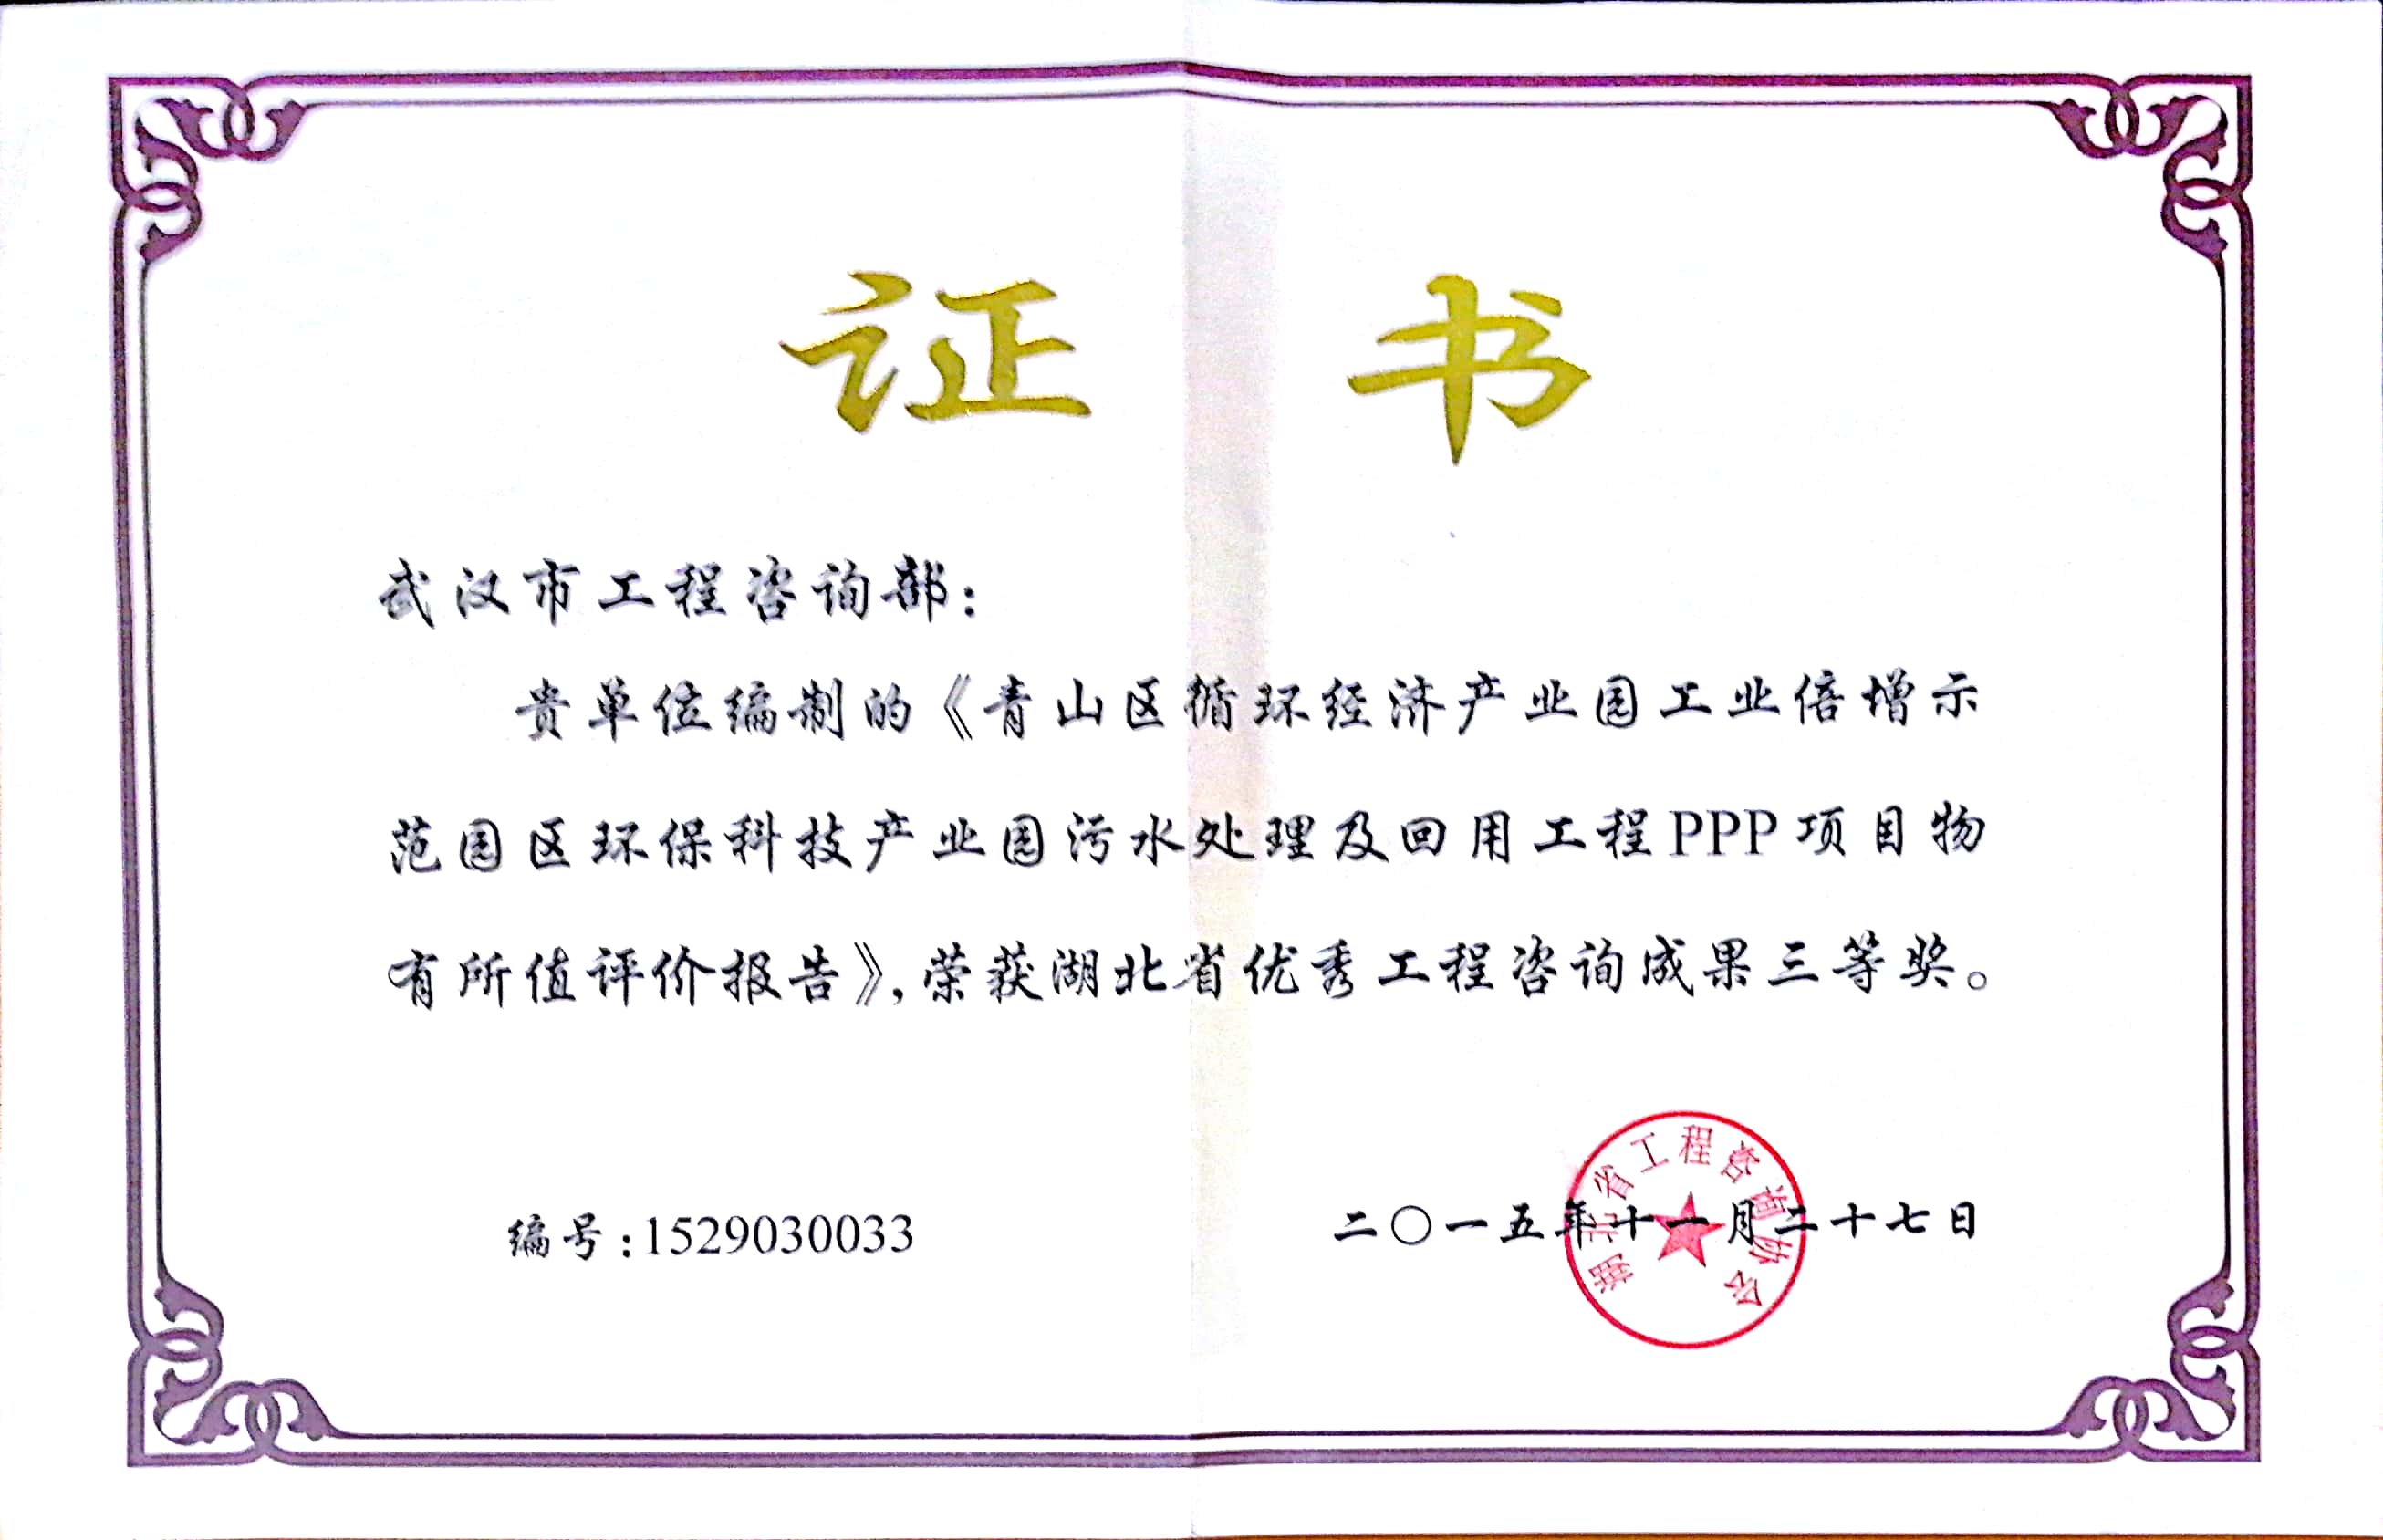 证书
武汉市工程咨询部：
贵单位编制的《青山区循环经济产业园工业倍增示
范园区环保科技产业园污水处理及回用工程PPP项目物
有所值评价报告》，荣获湖北省优秀工程咨询成果三等奖。
湖北省工程咨询协会
编号：1529030033
二〇一五年十一月二十七日